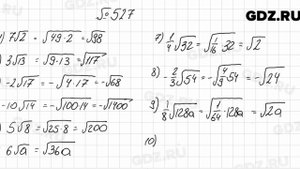 GDZ.RU
№527
1) 7√2 = √(49·2) = √98
3√13 = √(9·13) = √117
-2√17 = -√(4·17) = -√68
-10√14 = -√(100·14) = -√1400
5√8 = √(25·8) = √200
6√a = √(36a)
7) 1/4 √32 = √(1/16 · 32) = √2
8) -2/3 √54 = -√(4/9 · 54) = -√24
9) 1/8 √(128a) = √(1/64 · 128a) = √(2a)
10)
GDZ.RU